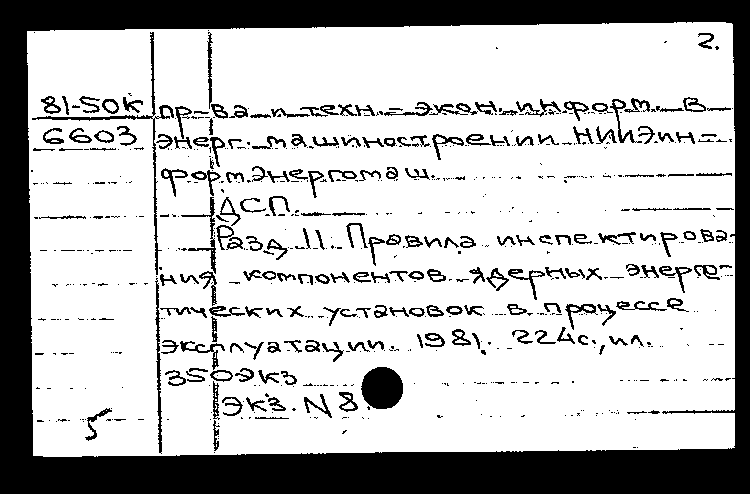 2.
81-50К пр-ва и техн.-экон. информ. в
6603 энерг. машиностроении НИИЭин-
формэнергомаш.
ДСП.
Разд 11. Правила инспектирова-
ния компонентов ядерных энерге-
тических установок в процессе
эксплуатации. 1981. 224с., ил.
350экз
экз. N 8.
5